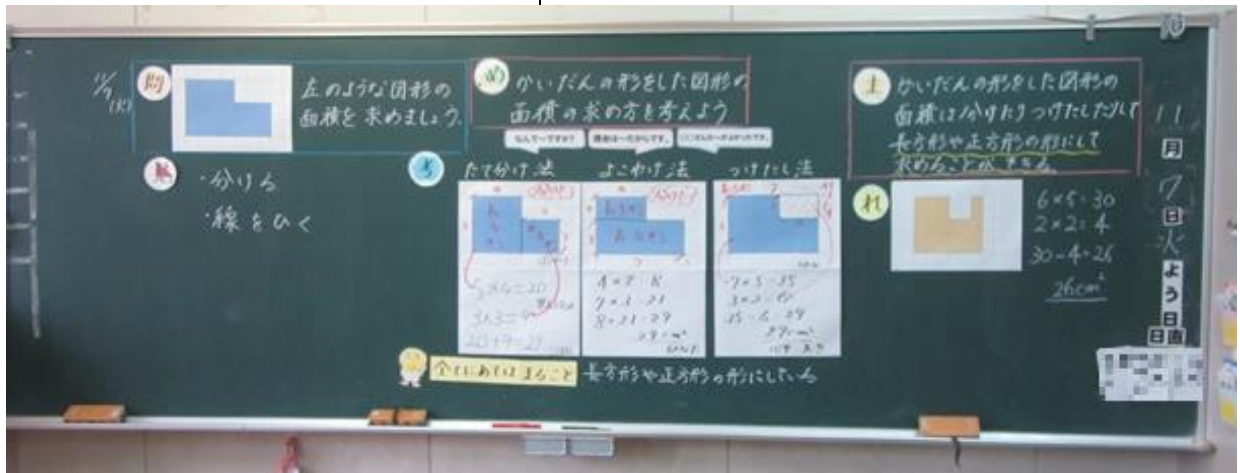 11/7(火)
問
左のような図形の
面積を求めましょう。
・分ける
・線をひく
め
かいだんの形をした図形の
面積の求め方を考えよう
なんで〜ですか?
理由は〜だからです。
考
たて分け法
よこわけ法
つけたし法
5×4=20
3×3=9
20+9=29
4×2=8
7×3=21
8+21=29
29cm²
7×5=35
3×2=6
35-6=29
29cm²
全てにあてはまること
長方形や正方形の形にしている
ま
かいだんの形をした図形の
面積は分けたりつけたしたりして
長方形や正方形の形にして
求めることができる
れ
6×5=30
2×2=4
30-4=26
26cm²
11
月
7
日
火
よ
う
日
日直